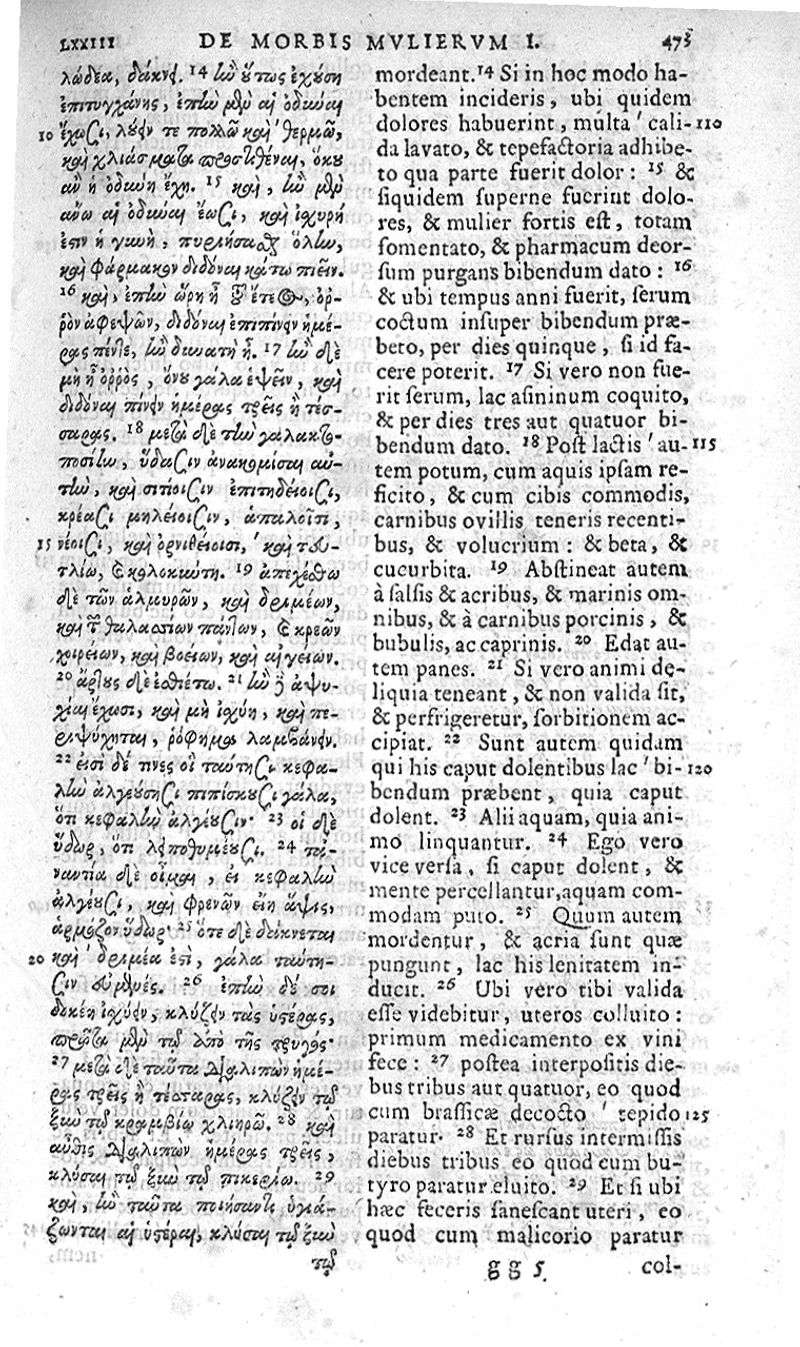 LXXIII DE MORBIS MVLIERVM I. 473
λώδεα, δάκνῃ. 14 ἢν οὕτως ἐχούσῃ
ἐπιτυγχάνῃς, ἐπὴν μὲν αἱ ὀδύναι
10 ἔχωσι, λούειν τε πολλῷ καὶ ' θερμῷ,
καὶ χλιάσματα προστιθέναι, ὅκου
ἂν ἡ ὀδύνη ἔχῃ. 15 καὶ, ἢν μὲν
ἄνω αἱ ὀδύναι ἔωσι, καὶ ἰσχυρή
ἐστιν ἡ γυνὴ, πυριήσας ὅλην,
καὶ φάρμακον διδόναι κάτω πιεῖν.
16 καὶ, ἐπὴν ὥρη ᾖ τοῦ ἔτεος, ὀρ-
ρὸν ἀφεψῶν, διδόναι ἐπιπίνειν ἡμέ-
ρας πέντε, ἢν δυνατὴ ᾖ. 17 ἢν δὲ
μὴ ᾖ ὀρρὸς, ὄνου γάλα ἑψεῖν, καὶ
διδόναι πίνειν ἡμέρας τρεῖς ἢ τέσ-
σαρας. 18 μετὰ δὲ τὴν γαλακτο-
ποσίην, ὕδασιν ἀνακομίσαι αὐ-
τὴν, καὶ σιτίοισιν ἐπιτηδείοισι,
κρέασι μηλείοισιν, ἁπαλοῖσι,
15 νέοισι, καὶ ὀρνιθείοισι, ' καὶ τευ-
τλίῳ, & κολοκύντῃ. 19 ἀπεχέσθω
δὲ τῶν ἁλμυρῶν, καὶ δριμέων,
καὶ τῶν θαλασσίων πάντων, & κρεῶν
χοιρείων, καὶ βοείων, καὶ αἰγείων.
20 ἄρτους δὲ ἐσθιέτω. 21 ἢν δὲ ἀψυ-
χίαι ἔχωσι, καὶ μὴ ἰσχύῃ, καὶ πε-
ριψύχηται, ῥόφημα λαμβάνειν.
22 εἰσὶ δέ τινες οἳ ταύτῃσι κεφα-
λὴν ἀλγεούσῃσι πιπίσκουσι γάλα,
ὅτι κεφαλὴν ἀλγέουσιν· 23 οἱ δὲ
ὕδωρ, ὅτι λειποθυμέουσι. 24 τἀ-
ναντία δὲ οἶμαι, εἰ κεφαλὴν
ἀλγέουσι, καὶ φρενῶν εἴη ἅψις,
ἁρμόζον ὕδωρ· 25 ὅτε δὲ δάκνεται
20 καὶ ' δριμέα ἐστὶ, γάλα ταύτῃ-
σιν εὐμενές. 26 ἐπὴν δέ σοι
δοκέῃ ἰσχύειν, κλύζειν τὰς ὑστέρας,
πρῶτα μὲν τῷ ἀπὸ τῆς τρυγός·
27 μετὰ δὲ ταῦτα διαλιπὼν ἡμέ-
ρας τρεῖς ἢ τέσσαρας, κλύζειν τῷ
ξὺν τῷ κραμβίῳ χλιηρῷ. 28 καὶ
αὖθις διαλιπὼν ἡμέρας τρεῖς,
κλύσαι τῷ ξὺν τῷ πικερίῳ. 29
καὶ, ἢν ταῦτα ποιήσαντι ὑγιά-
ζωνται αἱ ὑστέραι, κλύσαι τῷ ξὺν
τῷ
mordeant.14 Si in hoc modo ha-
bentem incideris, ubi quidem
dolores habuerint, multa ' cali- 110
da lavato, & tepefactoria adhibe-
to qua parte fuerit dolor: 15 &
siquidem superne fuerint dolo-
res, & mulier fortis est, totam
fomentato, & pharmacum deor-
sum purgans bibendum dato: 16
& ubi tempus anni fuerit, serum
coctum insuper bibendum præ-
beto, per dies quinque, si id fa-
cere poterit. 17 Si vero non fue-
rit serum, lac asininum coquito,
& per dies tres aut quatuor bi-
bendum dato. 18 Post lactis ' au- 115
tem potum, cum aquis ipsam re-
ficito, & cum cibis commodis,
carnibus ovillis teneris recenti-
bus, & volucrium: & beta, &
cucurbita. 19 Abstineat autem
à salsis & acribus, & marinis om-
nibus, & à carnibus porcinis, &
bubulis, ac caprinis. 20 Edat au-
tem panes. 21 Si vero animi de-
liquia teneant, & non valida sit,
& perfrigeretur, sorbitionem ac-
cipiat. 22 Sunt autem quidam
qui his caput dolentibus lac ' bi- 120
bendum præbent, quia caput
dolent. 23 Alii aquam, quia ani-
mo linquantur. 24 Ego vero
vice versa, si caput dolent, &
mente percellantur, aquam com-
modam puto. 25 Quum autem
mordentur, & acria sunt quæ
pungunt, lac his lenitatem in-
ducit. 26 Ubi vero tibi valida
esse videbitur, uteros colluito:
primum medicamento ex vini
fece: 27 postea interpositis die-
bus tribus aut quatuor, eo quod
cum brassicæ decocto ' tepido 125
paratur. 28 Et rursus intermissis
diebus tribus eo quod cum bu-
tyro paratur eluito. 29 Et si ubi
hæc feceris sanescant uteri, eo
quod cum malicorio paratur
gg 5 col-